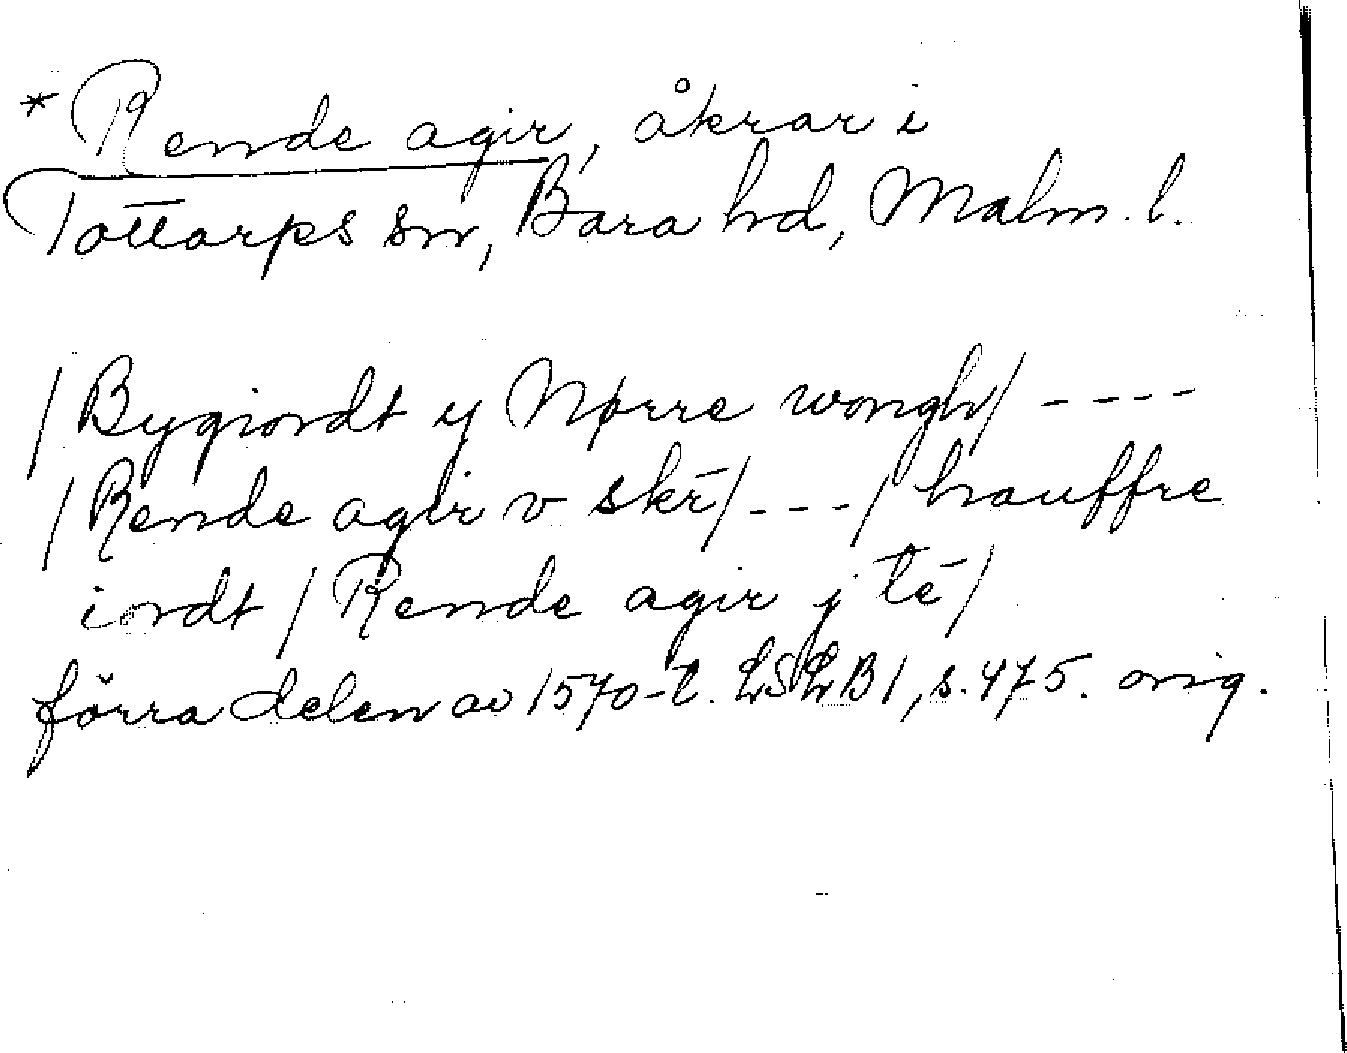 * Rende agir, åkrar i
Tottarps sn, Bara hd, Malm. l.
/ Bygiordt y Nørre wongh / ----
/ Rende agir v skr̄ / --- / hauffre
iordt / Rende agir j tē /
förra delen av 1570-t. LSLB 1, s. 475. orig.